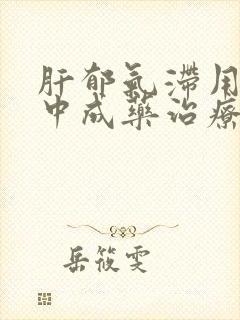 肝郁氣滯用
中成藥治療
岳筱雯